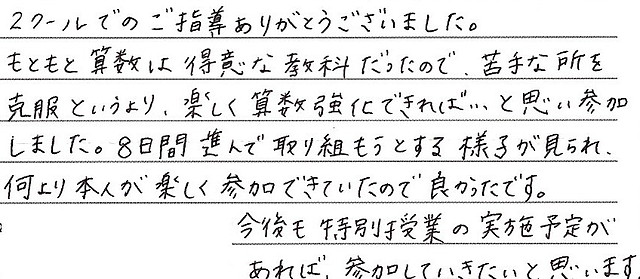 2クールでのご指導ありがとうございました。
もともと算数は得意な教科だったので、苦手な所を
克服というより、楽しく算数強化できれば…と思い参加
しました。8日間進んで取り組もうとする様子が見られ、
何より本人が楽しく参加できていたので良かったです。
今後も特別授業の実施予定が
あれば、参加していきたいと思います